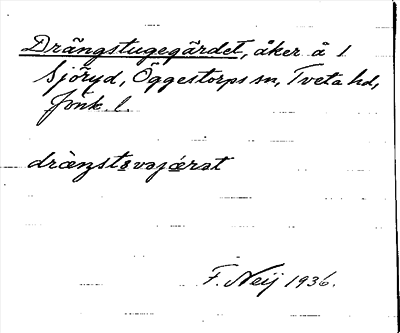 Drängstugegärdet, åker å 1
Sjöryd, Öggestorps sn, Tveta hd,
Jönk. l.
dràŋstɷvajǽrat
F. Neij 1936.